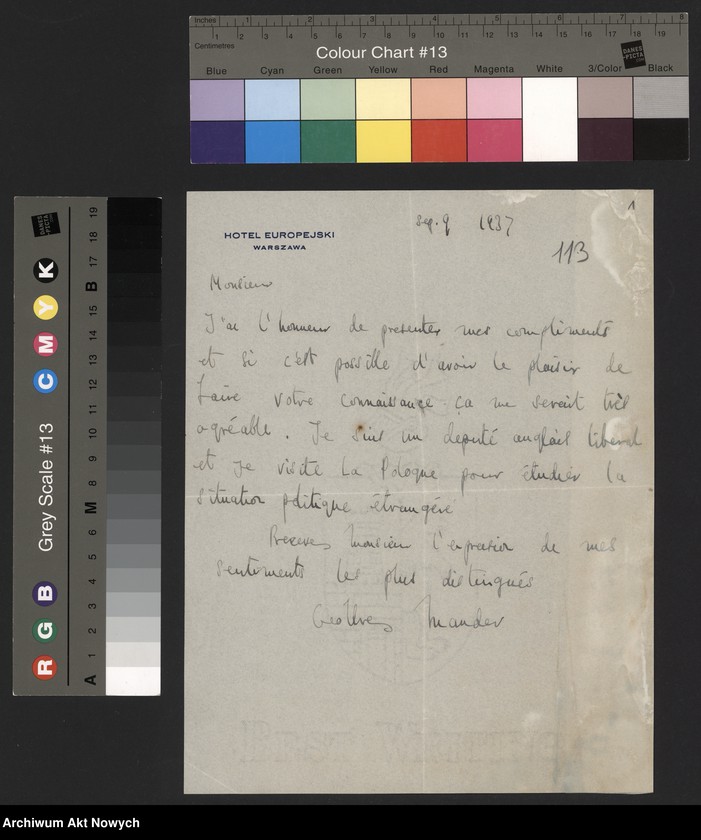 Inches 1 2 3 4 5 6 7 8
Centimetres 1 2 3 4 5 6 7 8 9 10 11 12 13 14 15 16 17 18 19
Colour Chart #13
DANES-PICTA
Blue Cyan Green Yellow Red Magenta White 3/Color Black
Grey Scale #13
DANES-PICTA
R G B C M Y K
A 1 2 3 4 5 6 M 8 9 10 11 12 13 14 15 B 17 18 19
HOTEL EUROPEJSKI
WARSZAWA
sep. 9 1937
1
113
Monsieur
J'ai l'honneur de presenter mes compliments
et si c'est possible d'avoir le plaisir de
faire votre connaissance ça me serait très
agréable. Je suis un deputé anglais liberal
et je visite la Pologne pour étudier la
situation politique étrangère
Monsieur l'expression de mes
sentiments les plus distingués
Mander
Archiwum Akt Nowych